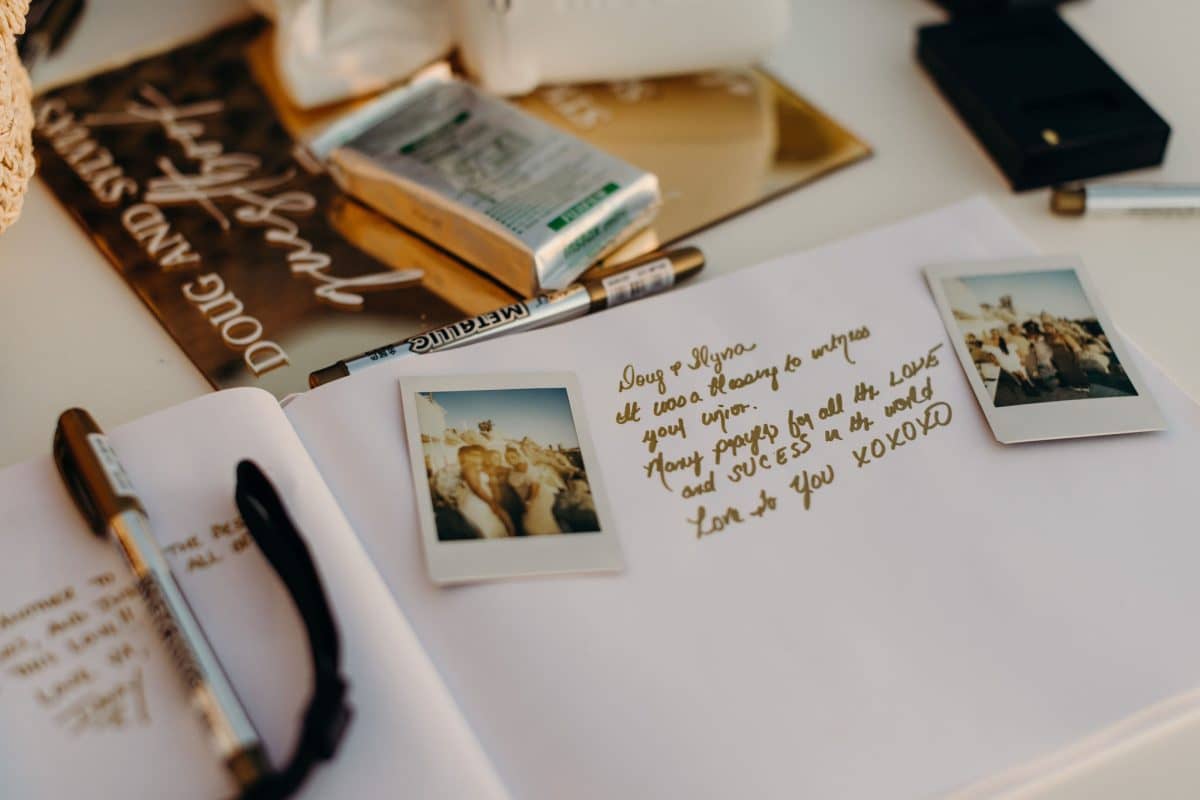 DOUG AND
guestbook
METALLIC
Doug &
It was a blessing to witness
your union.
Many prayers for all the LOVE
and SUCESS in the world
Love to You XOXOXO
THE BES
ALL OF
TO
THIS LOVE!!
LOVE YA,